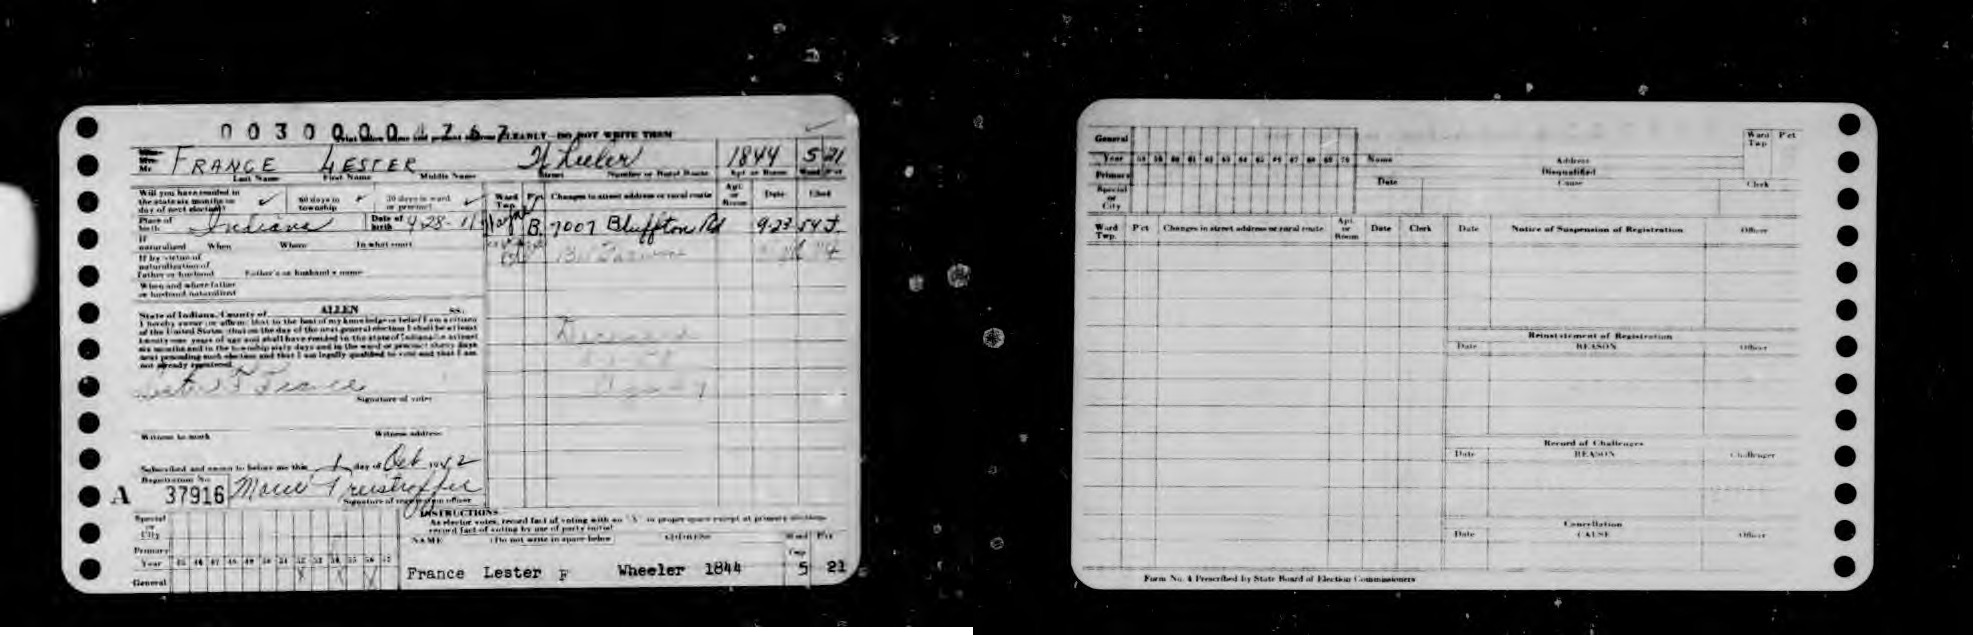 0030000 4767
PRINT YOUR NAME AND PRESENT ADDRESS CLEARLY—DO NOT WRITE THEM
Mrs Mr FRANCE LESTER Wheeler 1844 5 21
Last Name First Name Middle Name Street Number or Rural Route Apt or Room Ward Pct
Will you have resided in the state six months on day of next election? ✓ 60 days in township ✓ 30 days in ward or precinct ✓
Ward Twp. Pct Changes in street address or rural route Apt. or Room Date Clerk
Place of birth Indiana Date of birth 4-28-11
Wayne B. 7007 Bluffton Rd 9-23 54 J.
If naturalized When Where In what court
If by virtue of naturalization of father or husband Father's or husband's name
When and where father or husband naturalized
State of Indiana, County of ALLEN SS:
I hereby swear (or affirm) that to the best of my knowledge or belief I am a citizen
of the United States; that on the day of the next general election I shall be at least
twenty-one years of age and shall have resided in the state of Indiana for at least
six months and in the township sixty days and in the ward or precinct thirty days
next preceding such election and that I am legally qualified to vote and that I am
not already registered.
Deceased
Lester F France
Signature of voter
Witness to mark Witness address
Subscribed and sworn to before me this 1 day of Oct 1952
Registration No.
A 37916
Signature of registration officer
INSTRUCTIONS
As elector votes, record fact of voting with an "X" in proper space except at primary elections
record fact of voting by use of party initial
Special or City
NAME (Do not write in space below) ADDRESS Ward Twp Pct
Primary
Year 45 46 47 48 49 50 51 52 53 54 55 56 57
General X X
France Lester F Wheeler 1844 5 21
General
Year 58 59 60 61 62 63 64 65 66 67 68 69 70
Primary
Special or City
Name Address Ward Twp Pct
Disqualified
Date Cause Clerk
Ward Twp. Pct Changes in street address or rural route Apt. or Room Date Clerk Date Notice of Suspension of Registration Officer
Reinstatement of Registration
Date REASON Officer
Record of Challenges
Date REASON Challenger
Cancellation
Date CAUSE Officer
Form No. 4 Prescribed by State Board of Election Commissioners